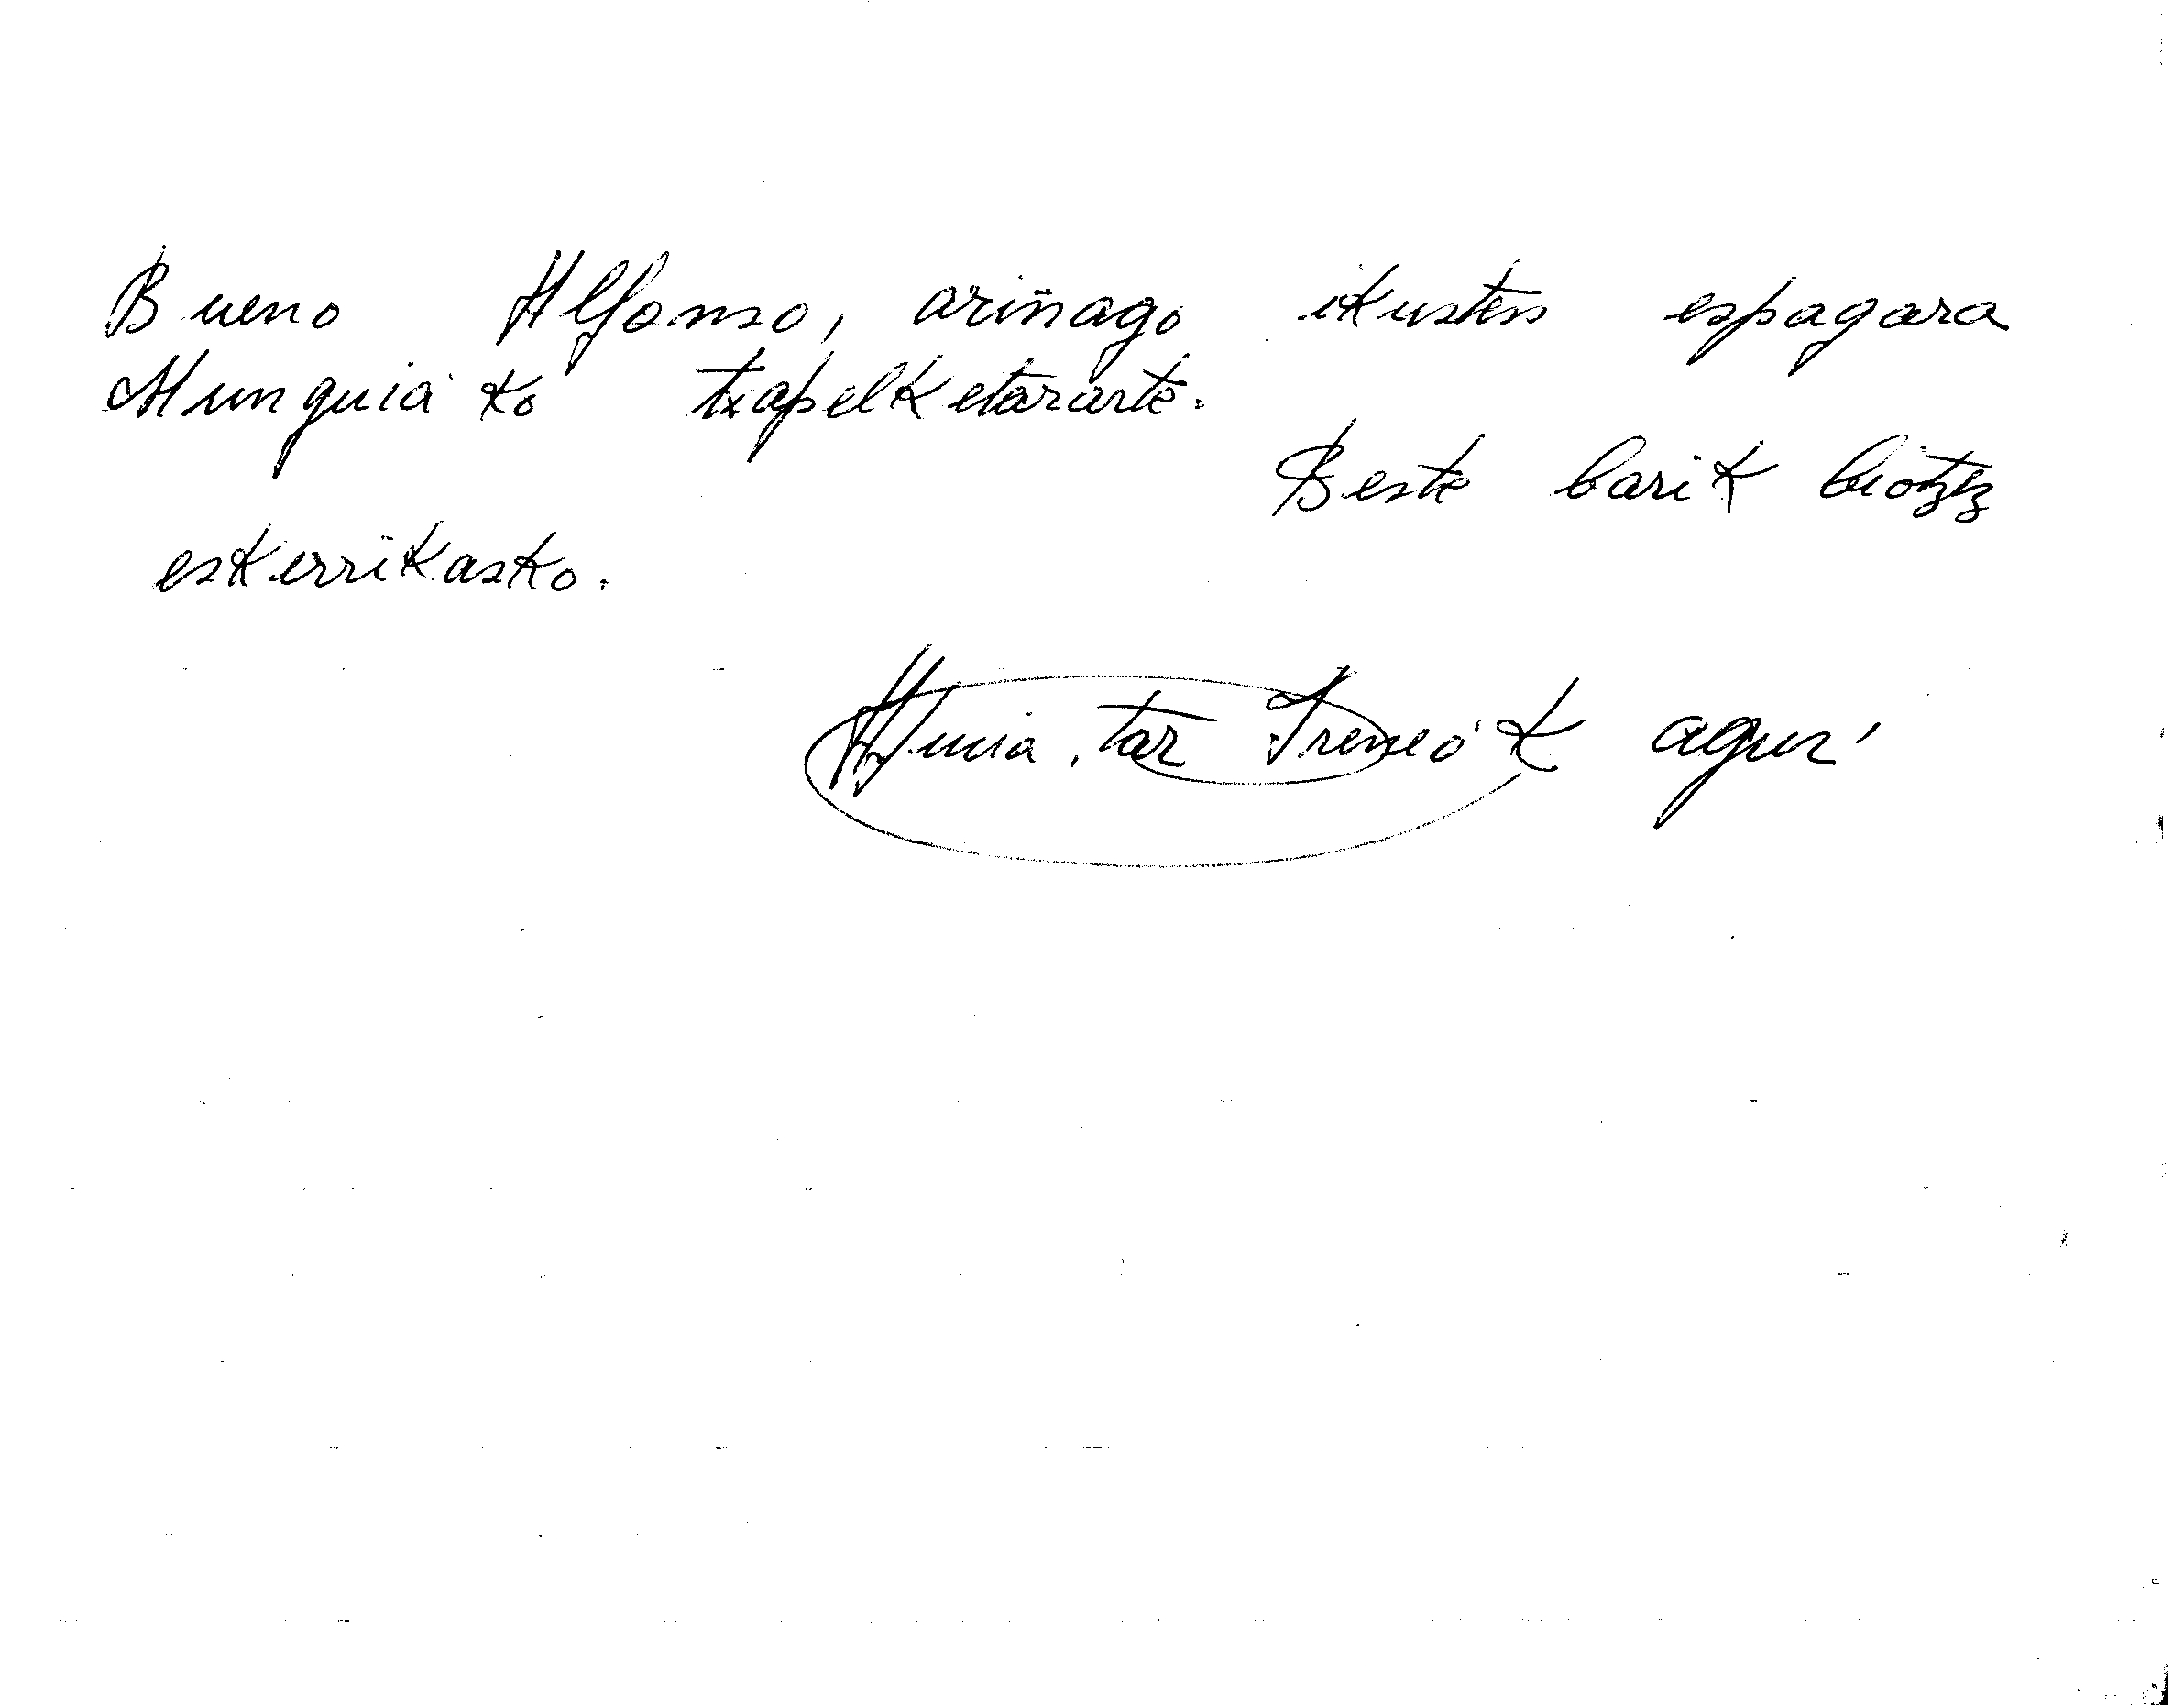 Bueno Alfonso, ariñago ikusten espagara
Munguia'ko txapelketararte.
Beste barik biotzez
eskerrikasko.
tar Ireneo'k agur'